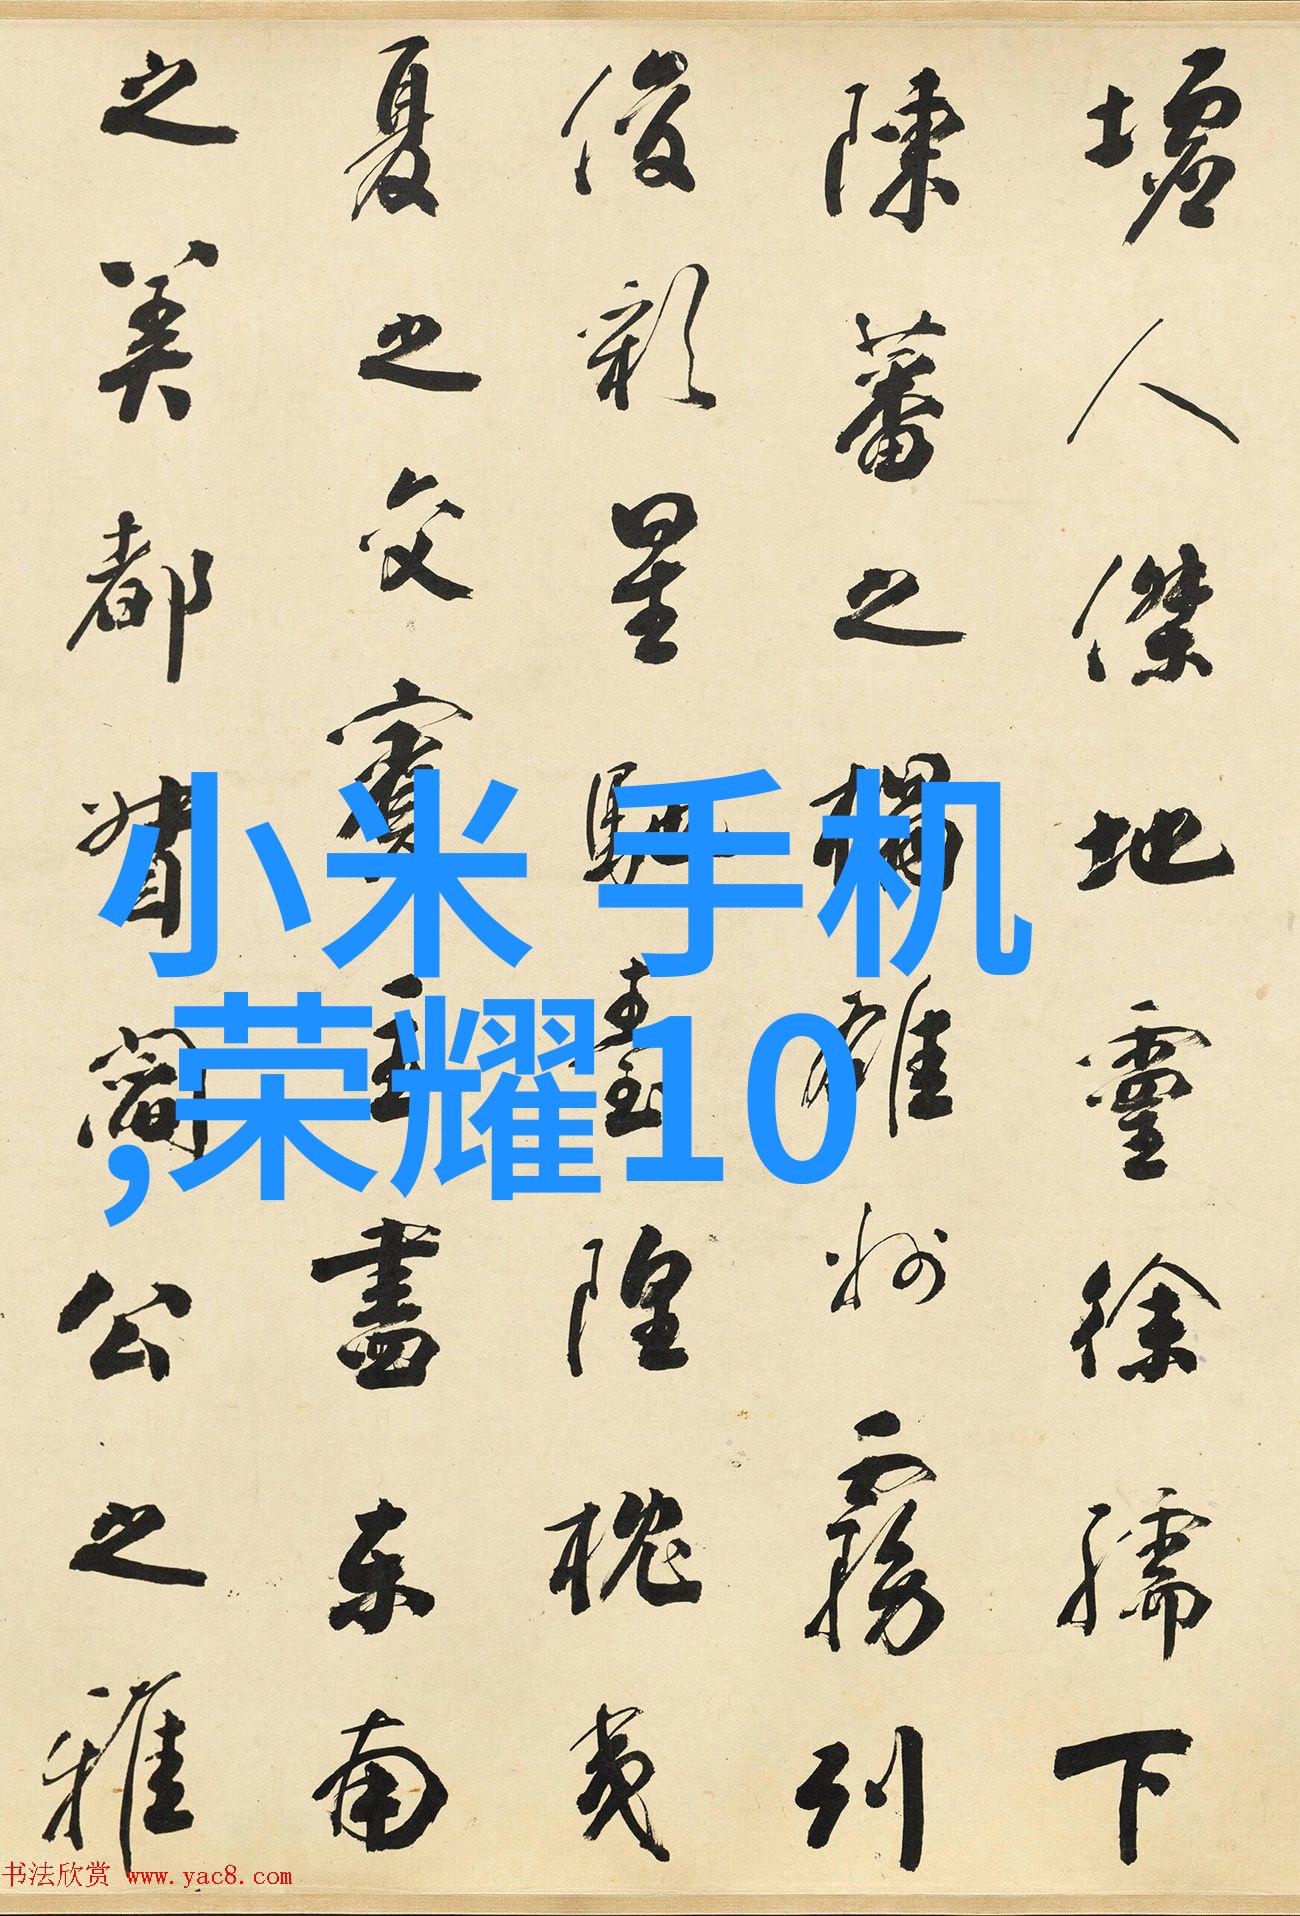 墟人傑地靈徐孺下
陳蕃之榻雄州霧列
俊彩星馳臺隍枕夷
夏之交賓主盡東南
之美都督閻公之雅
小米 手机
,荣耀10
书法欣赏 www.yac8.com